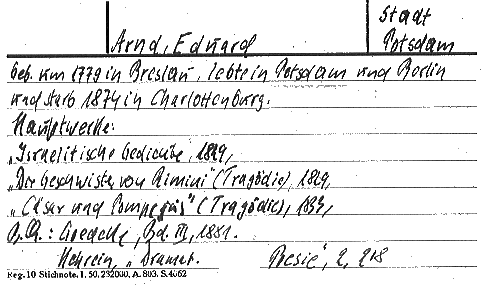 Stadt
Arnd, Eduard Potsdam
geb. um 1779 in Breslau, lebte in Potsdam und Berlin
und starb 1874 in Charlottenburg.
Hauptwerke:
„Israelitische Gedichte", 1829,
„Der Geschwister von Rimini" (Tragödie), 1829,
„Cäsar und Pompejus" (Tragödie), 1833,
Goedeke, Bd. III, 1881.
Kehrein, „Dramat. Poesie", 2, 218
Reg. 10 Stichnote. 1. 50. 232000. A. 803. S. 4062